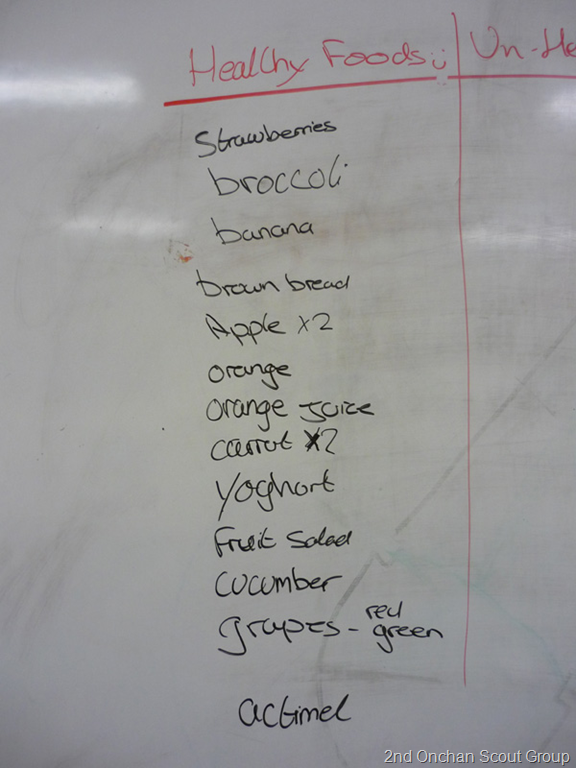 Healthy Foods :) Un-He
Strawberries
broccoli
banana
brown bread
Apple x2
orange
orange Juice
carrot x2
Yoghort
Fruit Salad
cucumber
grapes - red
green
actimel
2nd Onchan Scout Group